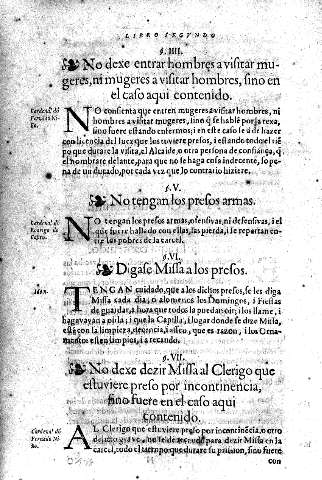 LIBRO SEGUNDO
§. IIII.
No dexe entrar hombres a visitar mu-
geres, ni mugeres a visitar hombres, sino en
el caso aqui contenido.
Cardenal dõ
NO consienta que entren mugeres a visitar hombres, ni
hombres a visitar mugeres, sino q̃ se hable por la rexa,
sino fuere estando enfermos; i en este caso se à de hazer
con licencia del Juez que los tuviere presos, i estando todo el tiẽ-
po que durare la visita, el Alcaide, o otra persona de confiança, q̃
el nombrare delante, para que no se haga cosa indecente, so pe-
na de un ducado, por cada vez que lo contrario hiziere.
§. V.
No tengan los presos armas.
Cardenal dõ
Rodrigo de
Castro.
NO tengan los presos armas, ofensivas, ni defensivas, i el
que fuere hallado con ellas, las pierda, i se repartan en-
tre los pobres de la carcel.
§. VI.
Digase Missa a los presos.
TENGAN cuidado, que a los dichos presos, se les diga
Missa cada dia; o alomenos los Domingos, i Fiestas
de guardar, a hora que todos la puedan oir; i los llame, i
hagan vayan a oirla; i que la Capilla, i lugar donde se dize Missa,
estè con la limpieza, decencia, i asseo, que es razon; i los Orna-
mentos esten limpios, i
§. VII.
No dexe dezir Missa al Clerigo que
estuviere preso por incontinencia,
sino fuere en el caso aqui
contenido.
Cardenal dõ
AL Clerigo que estuviere preso por incontinẽcia, o otro
delito grave, no se le para dezir Missa en la
carcel, todo el tiempo que durare su prision, sino fuere
con